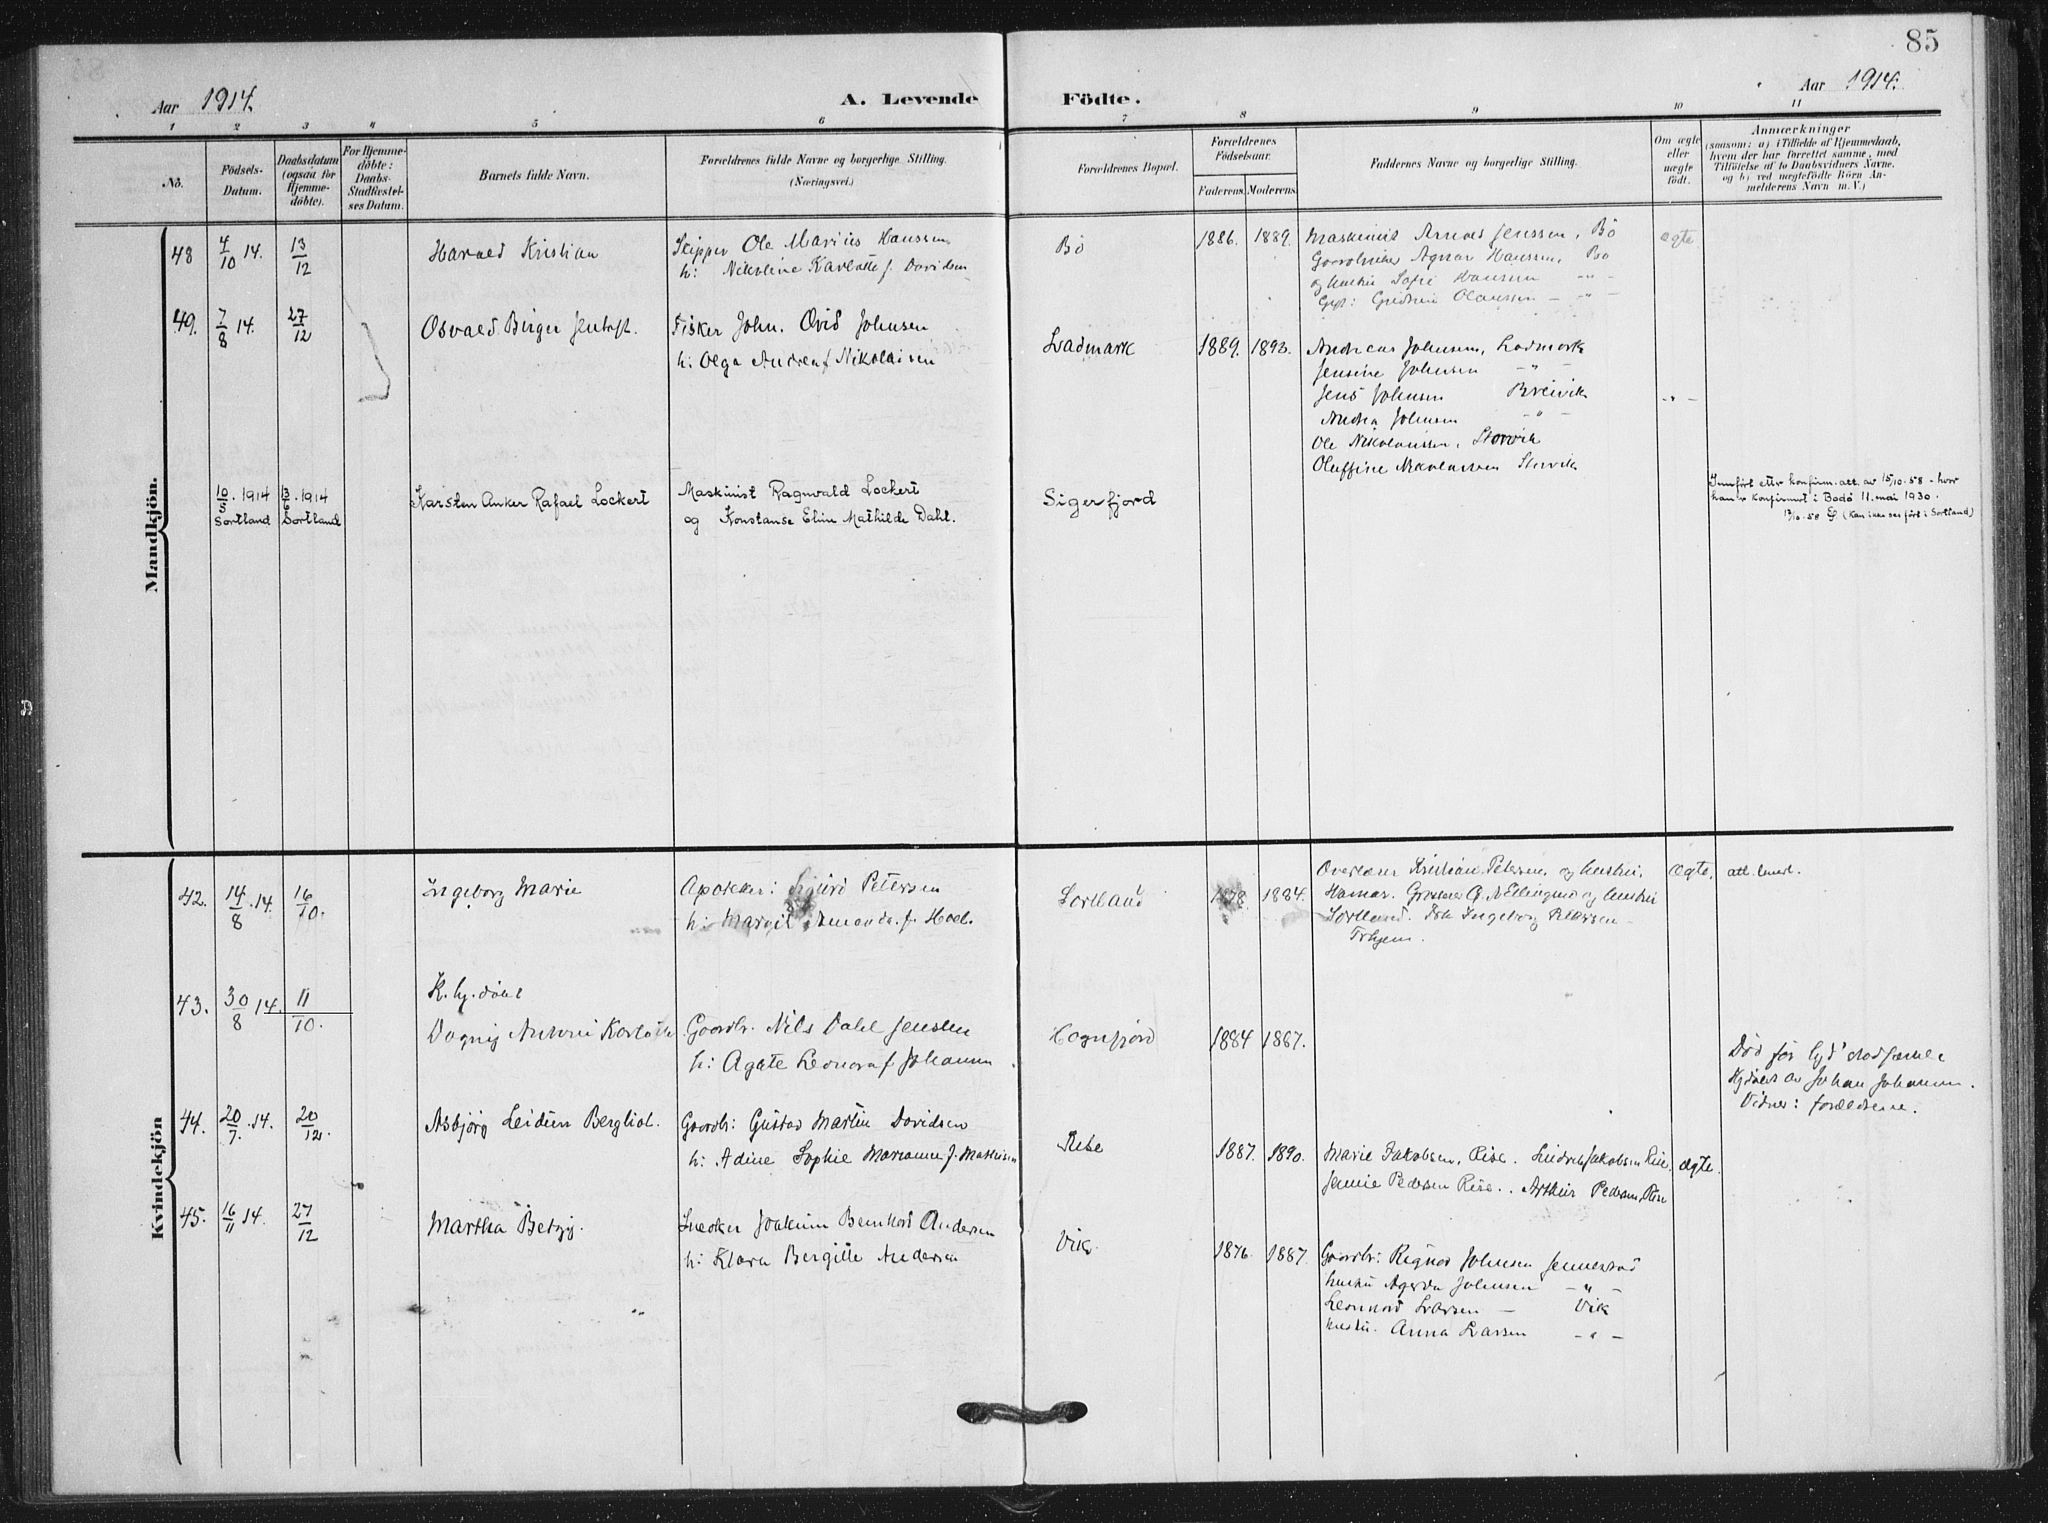 85
Aar 1914. A. Levende Födte. Aar 1914.
1 2 3 4 5 6 7 8 9 10 11
No.
Födsels-Datum.
Daabsdatum (ogsaa for Hjemme-döbte).
For Hjemme-döbte: Daabs-Stadfæstel-ses Datum.
Barnets fulde Navn.
Forældrenes fulde Navne og borgerlige Stilling.
(Næringsvei.)
Forældrenes Bopæl.
Forældrenes Födselsaar.
Faderens. Moderens.
Faddernes Navne og borgerlige Stilling.
Om ægte eller uægte födt.
Anmærkninger
(saasom: a) i Tilfælde af Hjemmedaab,
hvem der har forrettet samme, med
Tilföielse af to Daabsvidners Navne.
og b) ved uægtefödte Börn An-
melderens Navn m. V.)
Mandkjön.
48 4/10 14. 13/12 Harald Kristian
Skipper Ole Marius Hanssen
h: Nikoline Karlotte f. Davidsen
Bö 1886. 1889.
Maskinist Jenssen, Bö
Agnar Hanssen, Bö
og hustru Sofie Hanssen " "
Olaussen — " —
ægte
49. 7/8 14. 27/12 Osvald Birger Jentoft.
Fisker John. Ovid Johnsen
h: Olga Andrea f Nikolaisen
Ladmark 1889. 1893.
Andreas Johnsen, Ladmark
Jensine Johnsen — " —
Jens Johnsen Breivik
Andrea Johnsen — " —
Ole Nikolaissen, Storvik
Oluffine Nikolaissen Storvik
— " —
10/5. 1914 Sortland
13/6. 1914 Sortland
Karsten Anker Rafael Lockert
Maskinist Ragnvald Lockert
og Konstanse Elin Mathilde Dahl.
Sigerfjord
Innfört etter konfirm.att. av 15/10.58 - hvor
han er konfirmert i Bodö 11. mai 1930.
(Kan ikke sees fört i Sortland)
Kvindekjön
42. 14/8 .14. 16/10. Ingeborg Marie
Apoteker: Sigurd Petersen
h: Margit Amanda. f. Hoel.
Sortland 1878. 1884.
Kristian Petersen og hustru,
Hamar. Ellingsen og hustru
Sortland. Frk Ingeborg Petersen
Trhjem.
Ægte. att. levert.
43. 30/8 14. 11/10. K. hj. döbt
Dagny Antoni Karlotte
Gaardbr. Nils Dahl Jensen
h: Agate Leonora f Johansen
Hognfjord 1884 1887.
Död før hjd. stadfæstelse
Hjdöbt av Johan Johansen.
Vidner: forældrene.
44. 20/7. .14. 20/12. Asbjørg Leidun Bergliot.
Gaardbr: Gustav Martin Davidsen
h: Adine Sophie Marianne f. Mathisen
Rise 1887. 1890.
Marie Jakobsen, Rise. Jakobsen Rise.
Jennie Pedersen Rise. Arthur Pedersen, Rise
ægte.
45. 16/11 14. 27/12 Martha Betzy.
Snedker Joakim Bernhard Andersen
h: Klara Bergitte Andersen
Vik. 1876. 1887.
Gaardbr: Ragnvald Johnsen Jennestad
hustru Johnsen — " —
Leonhard Larsen — Vik
hustru. Anna Larsen — " —